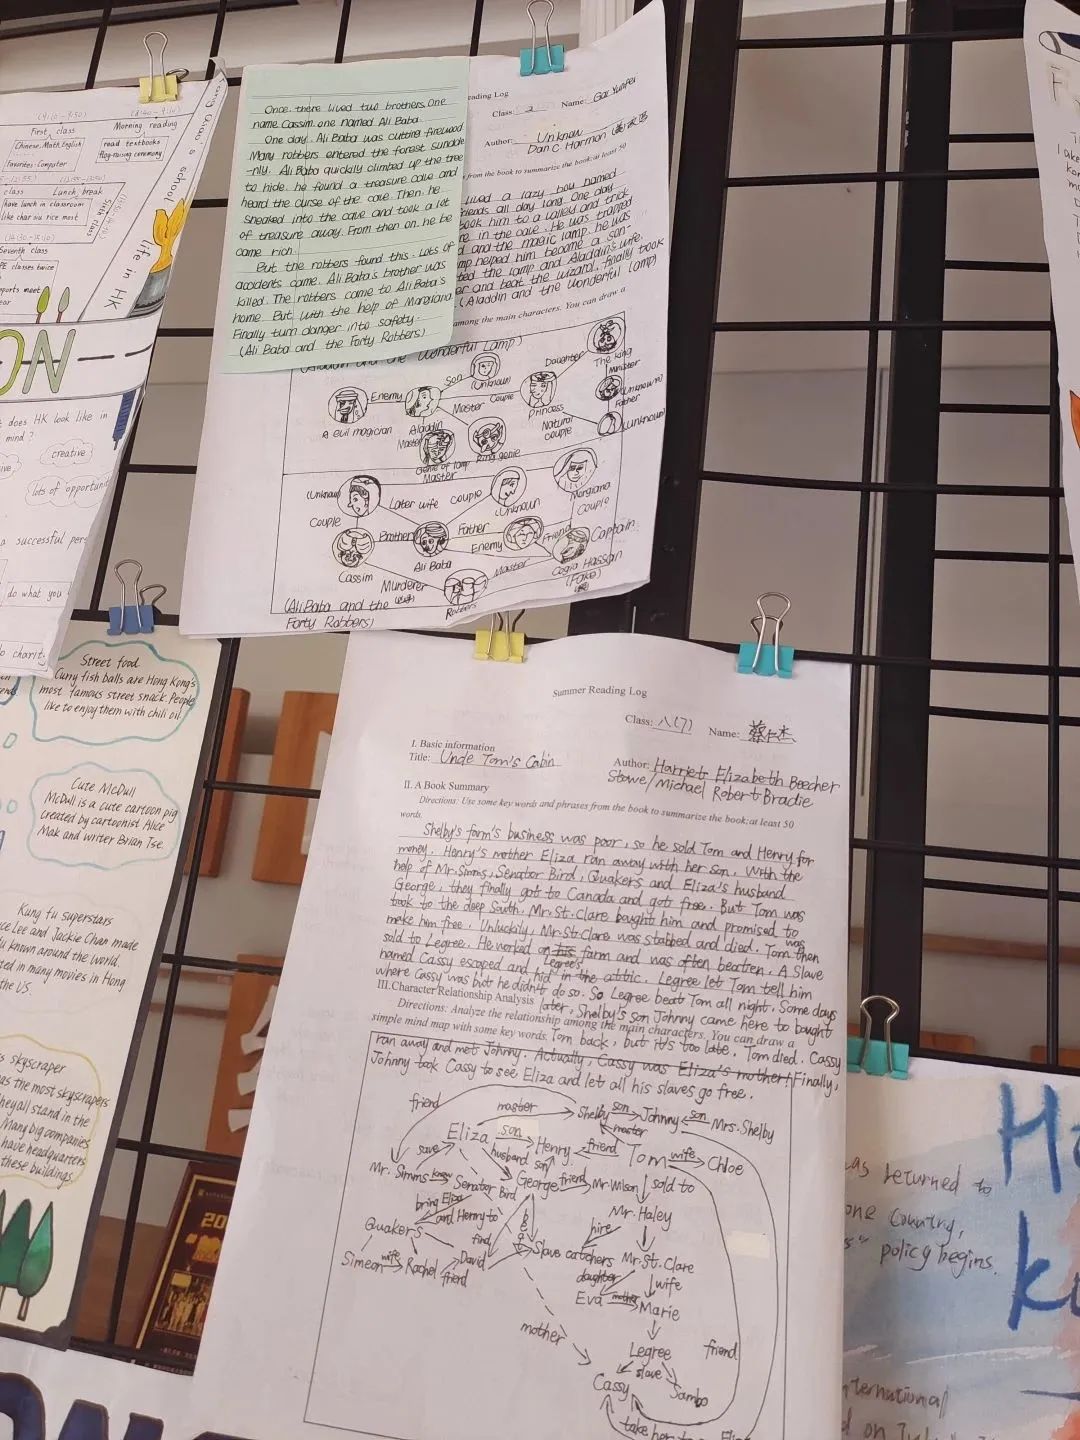 First class
Chinese, Math, English
Favorites: Computer
Morning reading
read textbooks
flag-raising ceremony
class
Lunch break
have lunch in classroom
like char siu rice most
Seventh class
PE classes twice
sports meet
school
life in HK
does HK look like in
mind?
creative
lots of opportun
a successful pers
do what you
charity
Once, there lived two brothers. One
name Cassim. one named Ali Baba.
One day. Ali Baba was cutting firewood
Many robbers entered the forest sundde
-nly. Ali Baba quickly climbed up the tree
to hide. he found a treasure cave and
heard the curse of the cave. Then. he
sneaked into the cave and took a lot
of treasure away. From then on. he be
came rich.
But the robbers found this. Lots of
accidents came. Ali Baba's brother was
killed. The robbers came to Ali Baba's
home. But, with the help of Margiana
Finally turn danger into safety.
(Ali Baba and the Forty Robbers)
eading Log
Class: 2 Name: Gao Yunfei
Author: Unknow
Dan C. Harmon
from the book to summarize the book; at least 50
lived a lazy boy named
riends all day long. One day
took him to a valled and trick
re in the cave. He was trapped
d and the magic lamp. he was
mp helped him become a son-
ted the lamp and Aladdin's wife.
er and beat the wizard, finally took
(Aladdin and the Wonderful Lamp)
among the main characters. You can draw a
(Aladdin and the Wonderful Lamp)
A evil magician
Enemy
Aladdin
Son
(Unknown)
Couple
Master
Master
Genie of lamp
Ring genie
Master
Princess
Daughter
The king
Minister
(Unknown)
Father
Natural
couple
(Unknown)
(Unknown)
Later wife
couple
(Unknown)
Margiana
Couple
Couple
Brother
Father
Enemy
Friend
Captain
Cassim
Ali Baba
Murderer
Master
Cogia Hassan
(Fake)
Robbers
(Ali Baba and the
Forty Robbers)
Street food
Curry fish balls are Hong Kong's
most famous street snack. People
like to enjoy them with chili oil.
Cute McDull
McDull is a cute cartoon pig
created by cartoonist Alice
Mak and writer Brian Tse.
Kung fu superstars
ce Lee and Jackie Chan made
fu known around the world.
ted in many movies in Hong
the US.
s skyscraper
as the most skyscrapers
They all stand in the
Many big companies
have headquarters
these buildings.
Summer Reading Log
Class: 八(7) Name: 蔡仁杰
I. Basic information
Title: Unde Tom's Cabin
Author: Harriet Elizabeth Beecher
Stowe/Michael Robert Bradie
II. A Book Summary
Directions: Use some key words and phrases from the book to summarize the book; at least 50
words.
Shelby's farm's business was poor, so he sold Tom and Henry for
money. Henry's mother Eliza ran away with her son. With the
help of Mr. Simms, Senator Bird, Quakers and Eliza's husband
George, they finally got to Canada and got free. But Tom was
took to the deep South. Mr. St. Clare bought him and promised to
make him free. Unluckily, Mr. St. Clare was stabbed and died. Tom was then
sold to Legree. He worked on his Legree's farm and was often beaten. A slave
named Cassy escaped and hid in the attic. Legree let Tom tell him
where Cassy was but he didn't do so. So Legree beat Tom all night. Some days
III. Character Relationship Analysis
later, Shelby's son Johnny came here to bought
Directions: Analyze the relationship among the main characters. You can draw a
simple mind map with some key words.
Tom back, but it's too late. Tom died. Cassy
ran away and met Johnny. Actually, Cassy was Eliza's mother! Finally,
Johnny took Cassy to see Eliza and let all his slaves go free.
friend
master
Shelby son Johnny son Mrs. Shelby
master
Eliza son Henry friend Tom wife Chloe
save
husband
son
Mr. Simms knew Senator Bird George friend Mr Wilson sold to
bring Eliza
and Henry to
Mr. Haley
Quakers
find
beat
hire
Simeon wife Rachel friend David
Slave catchers
Mr. St. Clare
daughter
wife
Eva mother Marie
mother
Legree
friend
slave
Cassy
Sambo
take her to
as returned to
one Country,
s" policy begins.
ternational